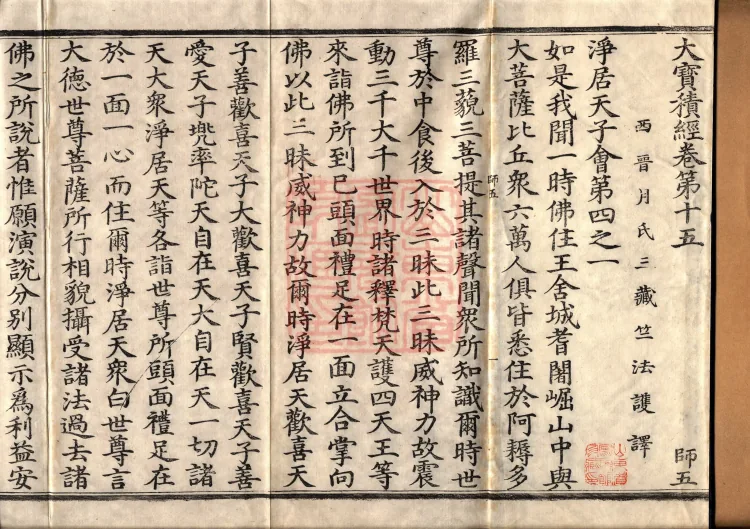 大寶積經卷第十五
師五
西晉月氏三藏竺法護譯
淨居天子會第四之一
如是我聞一時佛住王舍城耆闍崛山中與
大菩薩比丘衆六萬人俱皆悉住於阿耨多
師五
羅三藐三菩提其諸聲聞衆所知識爾時世
尊於中食後入於三昧此三昧威神力故震
動三千大千世界時諸釋梵天護四天王等
來詣佛所到已頭面禮足在一面立合掌向
佛以此三昧威神力故爾時淨居天歡喜天
子善歡喜天子大歡喜天子賢歡喜天子善
愛天子兠率陀天自在天大自在天一切諸
天大衆淨居天等各詣世尊所頭面禮足在
於一面一心而住爾時淨居天衆白世尊言
大德世尊菩薩所行相貌攝受諸法過去諸
佛之所說者惟願演說分別顯示爲利益安